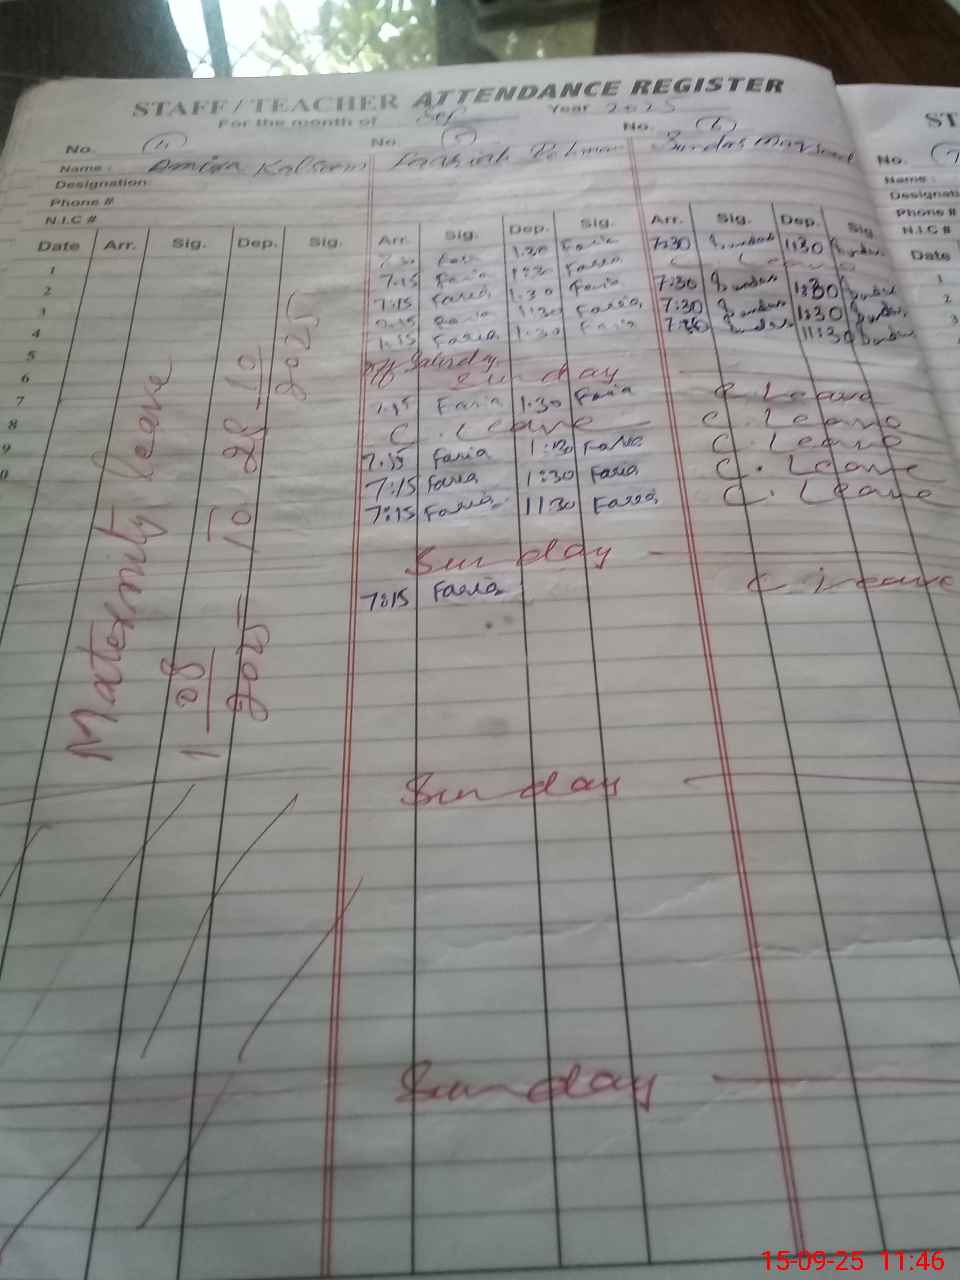 STAFF/TEACHER ATTENDANCE REGISTER
For the month of Sep Year 2025
No. (4) No (5) No. (6)
Name: Amina Kalsom Rehman Sundas
Designation:
Phone #
N.I.C #
Date Arr. Sig. Dep. Sig. Arr. Sig. Dep. Sig. Arr. Sig. Dep. Sig.
1 1:30 Faria 7:30 Sundas 1:30 Sundas
2 7:15 Faria 1:30 Faria C Leave
3 7:15 Faria 1:30 Faria 7:30 Sundas 1:30 Sundas
4 7:15 Faria 1:30 Faria 7:30 Sundas 1:30 Sundas
5 7:15 Faria 1:30 Faria 7:30 Sundas 1:30 Sundas
6 off Saturday
7 Sunday
8 7:15 Faria 1:30 Faria C Leave
9 C. Leave C. Leave
0 7:15 Faria 1:30 Faria C. Leave
7:15 Faria 1:30 Faria C. Leave
7:15 Faria 1:30 Faria C. Leave
Sunday
7:15 Faria C Leave
Sunday
Sunday
Maternity leave
1-08 To 28-10
2025 2025
ST
No. (7
Name:
Designati
Phone #
N.I.C #
Date
1
2
3
15-09-25 11:46